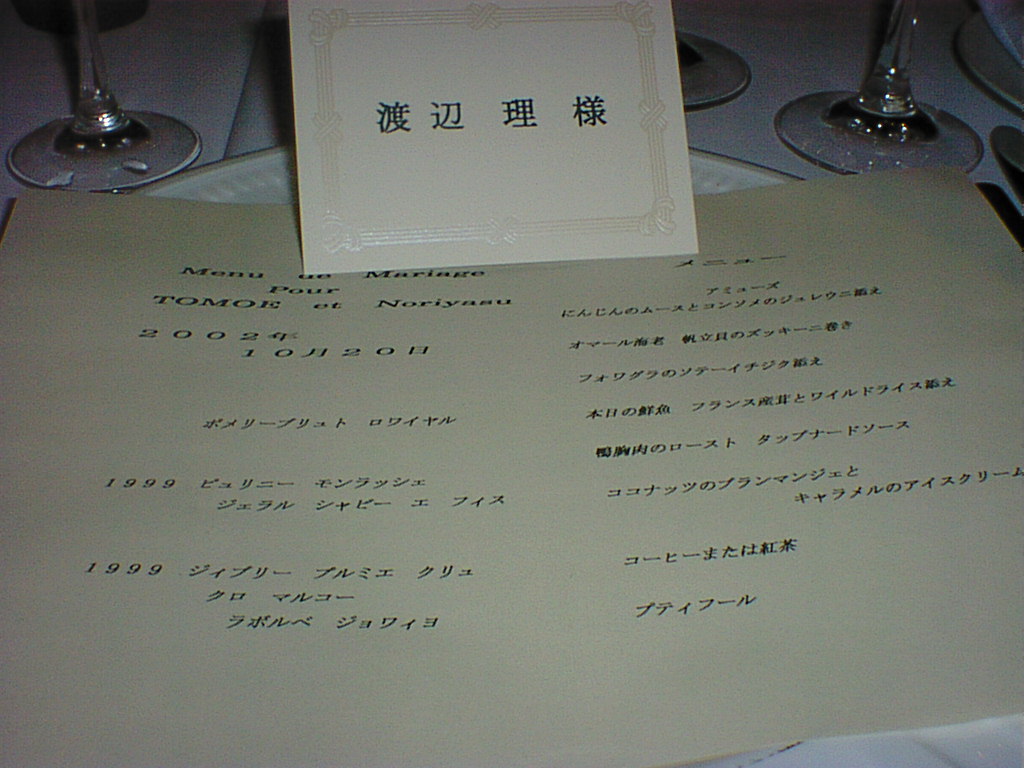 渡辺 理 様
Menu de Mariage
Pour
TOMOE et Noriyasu
2002年
10月20日
ポメリーブリュト ロワイヤル
1999 ピュリニー モンラッシェ
ジェラル シャビー エ フィス
1999 ジィブリー プルミエ クリュ
クロ マルコー
ラボルベ ジョワィヨ
メニュー
アミューズ
にんじんのムースとコンソメのジュレウニ添え
オマール海老 帆立貝のズッキーニ巻き
フォワグラのソテーイチジク添え
本日の鮮魚 フランス産茸とワイルドライス添え
鴨胸肉のロースト タップナードソース
ココナッツのブランマンジェと
キャラメルのアイスクリーム
コーヒーまたは紅茶
プティフール